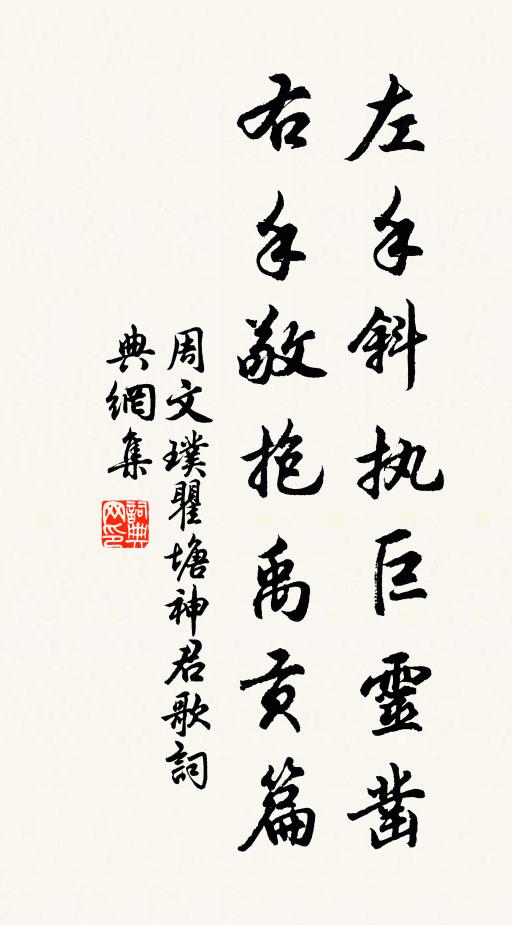 左手斜执巨靈凿
右手敬抱禹贡篇
周文璞瞿塘神君歌詞
典網集
詞典网印